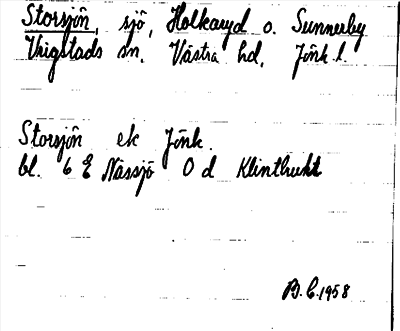 Storsjön, sjö, Holkaryd o. Sunnerby
Vrigstads sn. Västra hd, Jönk. l.
Storsjön ek Jönk.
bl. 6 E Nässjö 0 d Klinthult
B. C. 1958